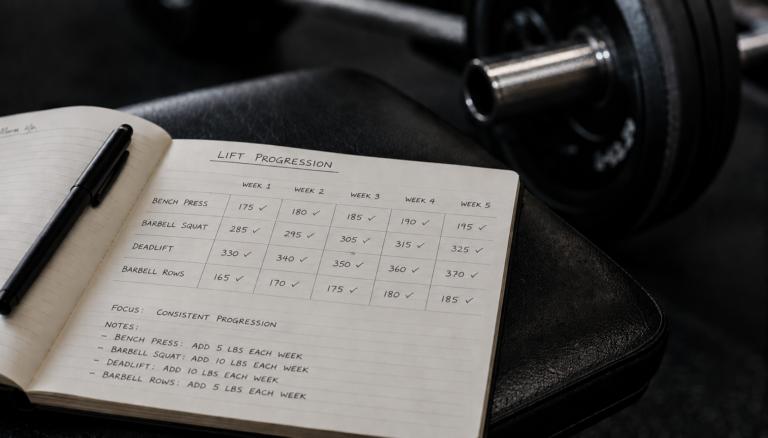 LIFT PROGRESSION
WEEK 1 WEEK 2 WEEK 3 WEEK 4 WEEK 5
BENCH PRESS 175 ✓ 180 ✓ 185 ✓ 190 ✓ 195 ✓
BARBELL SQUAT 285 ✓ 295 ✓ 305 ✓ 315 ✓ 325 ✓
DEADLIFT 330 ✓ 340 ✓ 350 ✓ 360 ✓ 370 ✓
BARBELL ROWS 165 ✓ 170 ✓ 175 ✓ 180 ✓ 185 ✓
FOCUS: CONSISTENT PROGRESSION
NOTES:
– BENCH PRESS: ADD 5 LBS EACH WEEK
– BARBELL SQUAT: ADD 10 LBS EACH WEEK
– DEADLIFT: ADD 10 LBS EACH WEEK
– BARBELL ROWS: ADD 5 LBS EACH WEEK